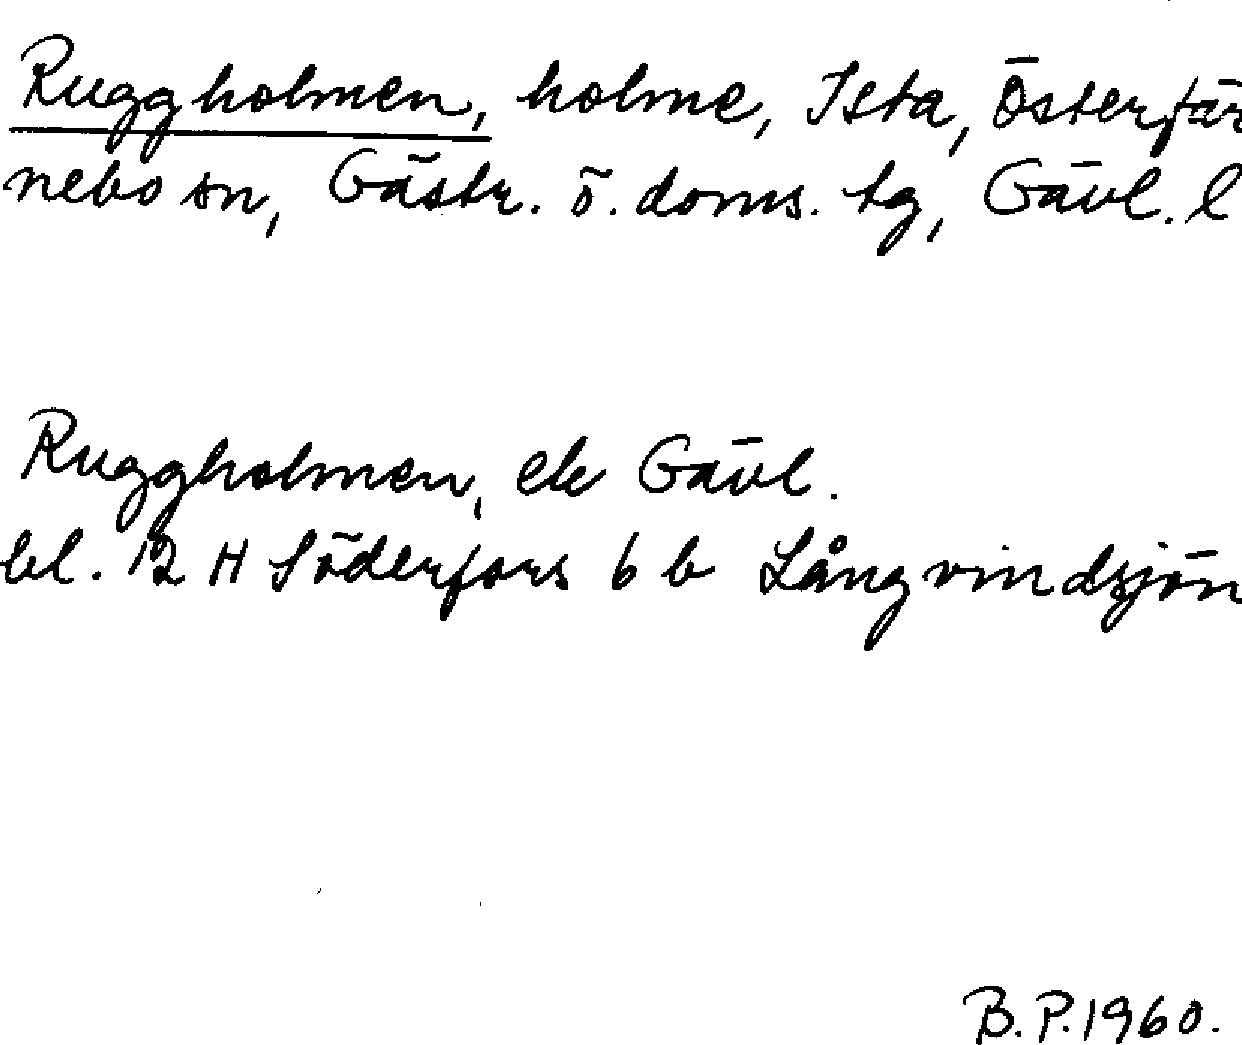 Ruggholmen, holme, Ista, Österfär
nebo sn, Gästr. ö. doms. tg, Gävl. l
Ruggholmen, ek Gävl.
bl. 12 H Söderfors 6 b Långvindsjön
B.P.1960.